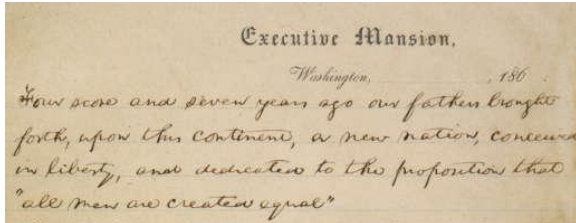 Executive Mansion,
Washington, , 186 .
Four score and seven years ago our fathers brought
forth, upon this continent, a new nation, conceived
in liberty, and dedicated to the proposition that
"all men are created equal"